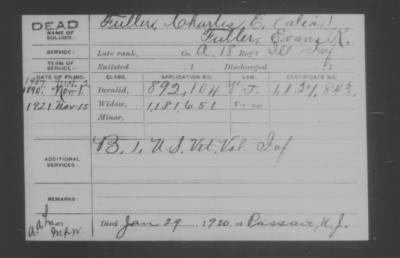 DEAD
NAME OF SOLDIER:
Fuller, Charles E. (alias)
Fuller, Evans K.
SERVICE:
Late rank, Co. A, 18 Reg't Ill Inf
TERM OF SERVICE:
Enlisted , 1 Discharged , 1
DATE OF FILING. CLASS. APPLICATION NO. LAW. CERTIFICATE NO.
1890. Nov. Invalid, 892,104 J. 1,127,843.
1921 Nov 15 Widow, 1,181,651 5-1-20
Minor,
ADDITIONAL SERVICES:
B, 1, U.S. Vet. Vol. Inf
REMARKS:
Died Jan 29, 1920, at Passaic, N.J.